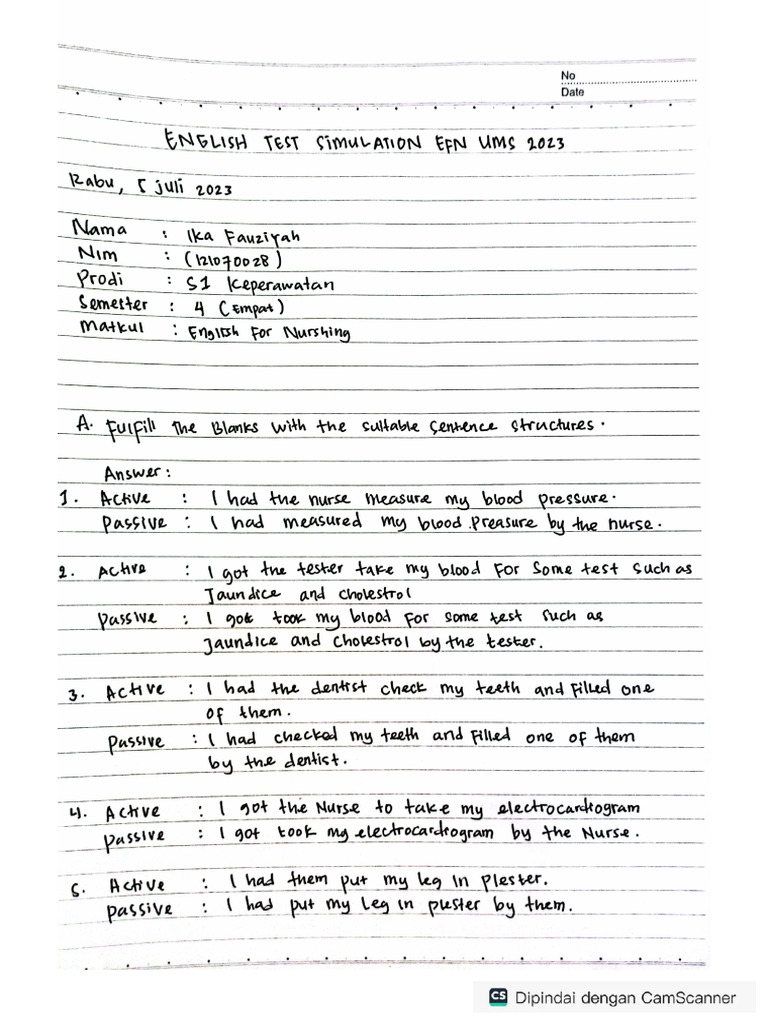 No
Date
ENGLISH TEST SIMULATION EFN UMS 2023
Rabu, 5 juli 2023
Nama : Ika Fauziyah
Nim : (121070028)
Prodi : S1 Keperawatan
Semester : 4 (Empat)
Matkul : English For Nurshing
A. Fulfill The Blanks with the suitable sentence structures.
Answer :
1. Active : I had the nurse measure my blood pressure.
Passive : I had measured my blood preasure by the nurse.
2. Active : I got the tester take my blood for some test such as
Jaundice and cholestrol
Passive : I got took my blood for some test such as
Jaundice and cholestrol by the tester.
3. Active : I had the dentist check my teeth and filled one
of them.
Passive : I had checked my teeth and filled one of them
by the dentist.
4. Active : I got the Nurse to take my electrocardiogram
Passive : I got took my electrocardiogram by the Nurse.
5. Active : I had them put my leg in plester.
Passive : I had put my leg in plester by them.
CS Dipindai dengan CamScanner